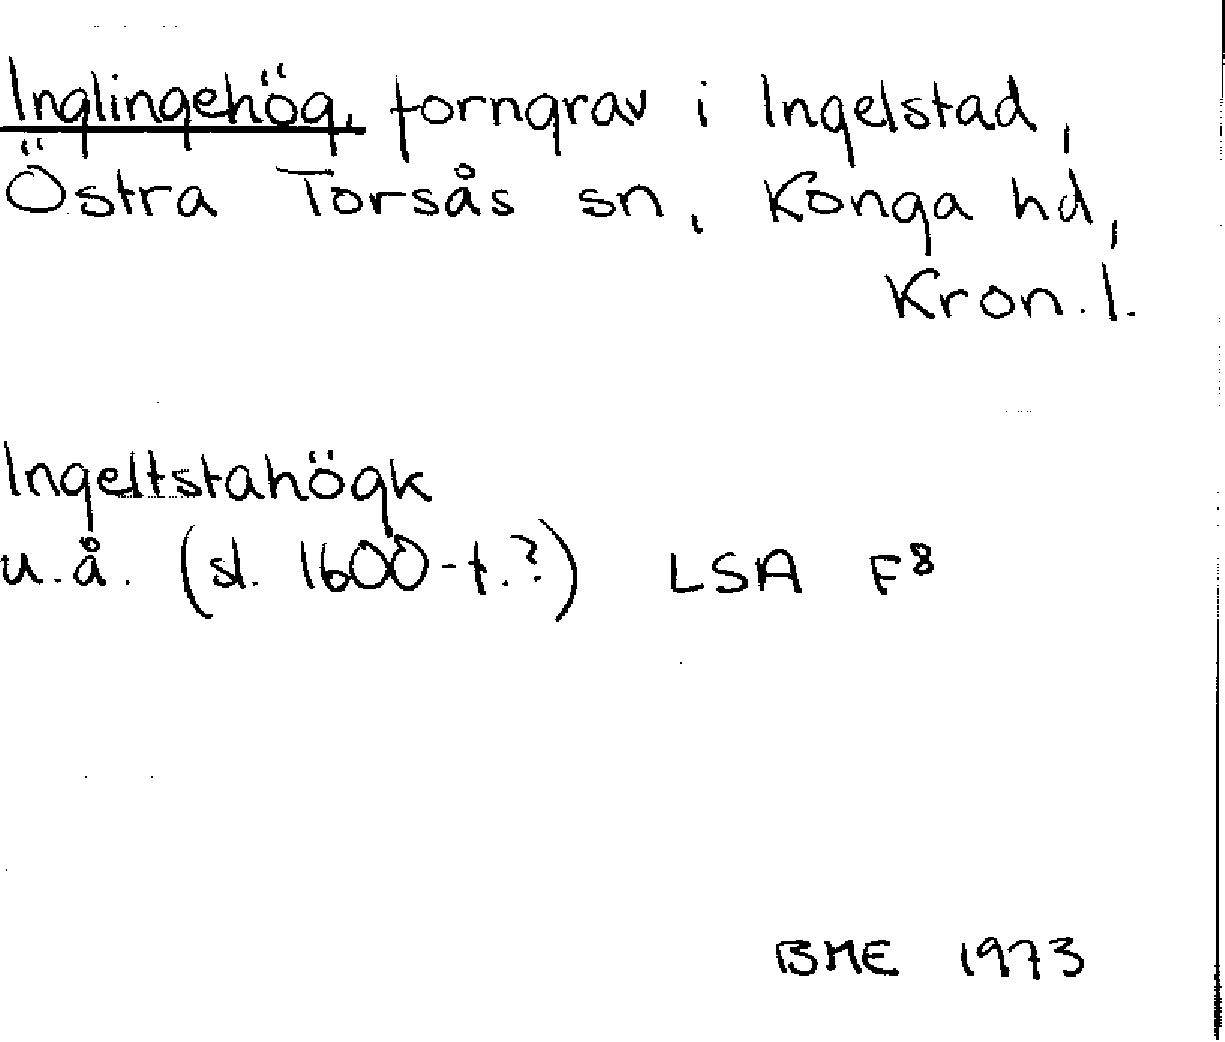 Inglingehög, forngrav i Ingelstad,
Östra Torsås sn, Konga hd,
Kron. l.
Ingeltstahögk
u.å. (sl. 1600-t.?) LSA F8
BME 1973